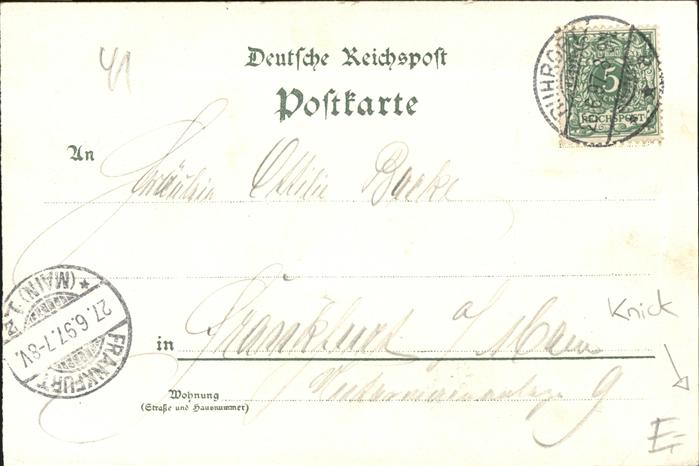 41
Deutsche Reichspost
Postkarte
5
REICHSPOST
RUHRORT
An
Fräulein Ottilie Boeke
FRANKFURT (MAIN) 1.
27.6.97.7-8V.
in Frankfurt a/Main
Wohnung
(Straße und Hausnummer)
9
Knick
E-